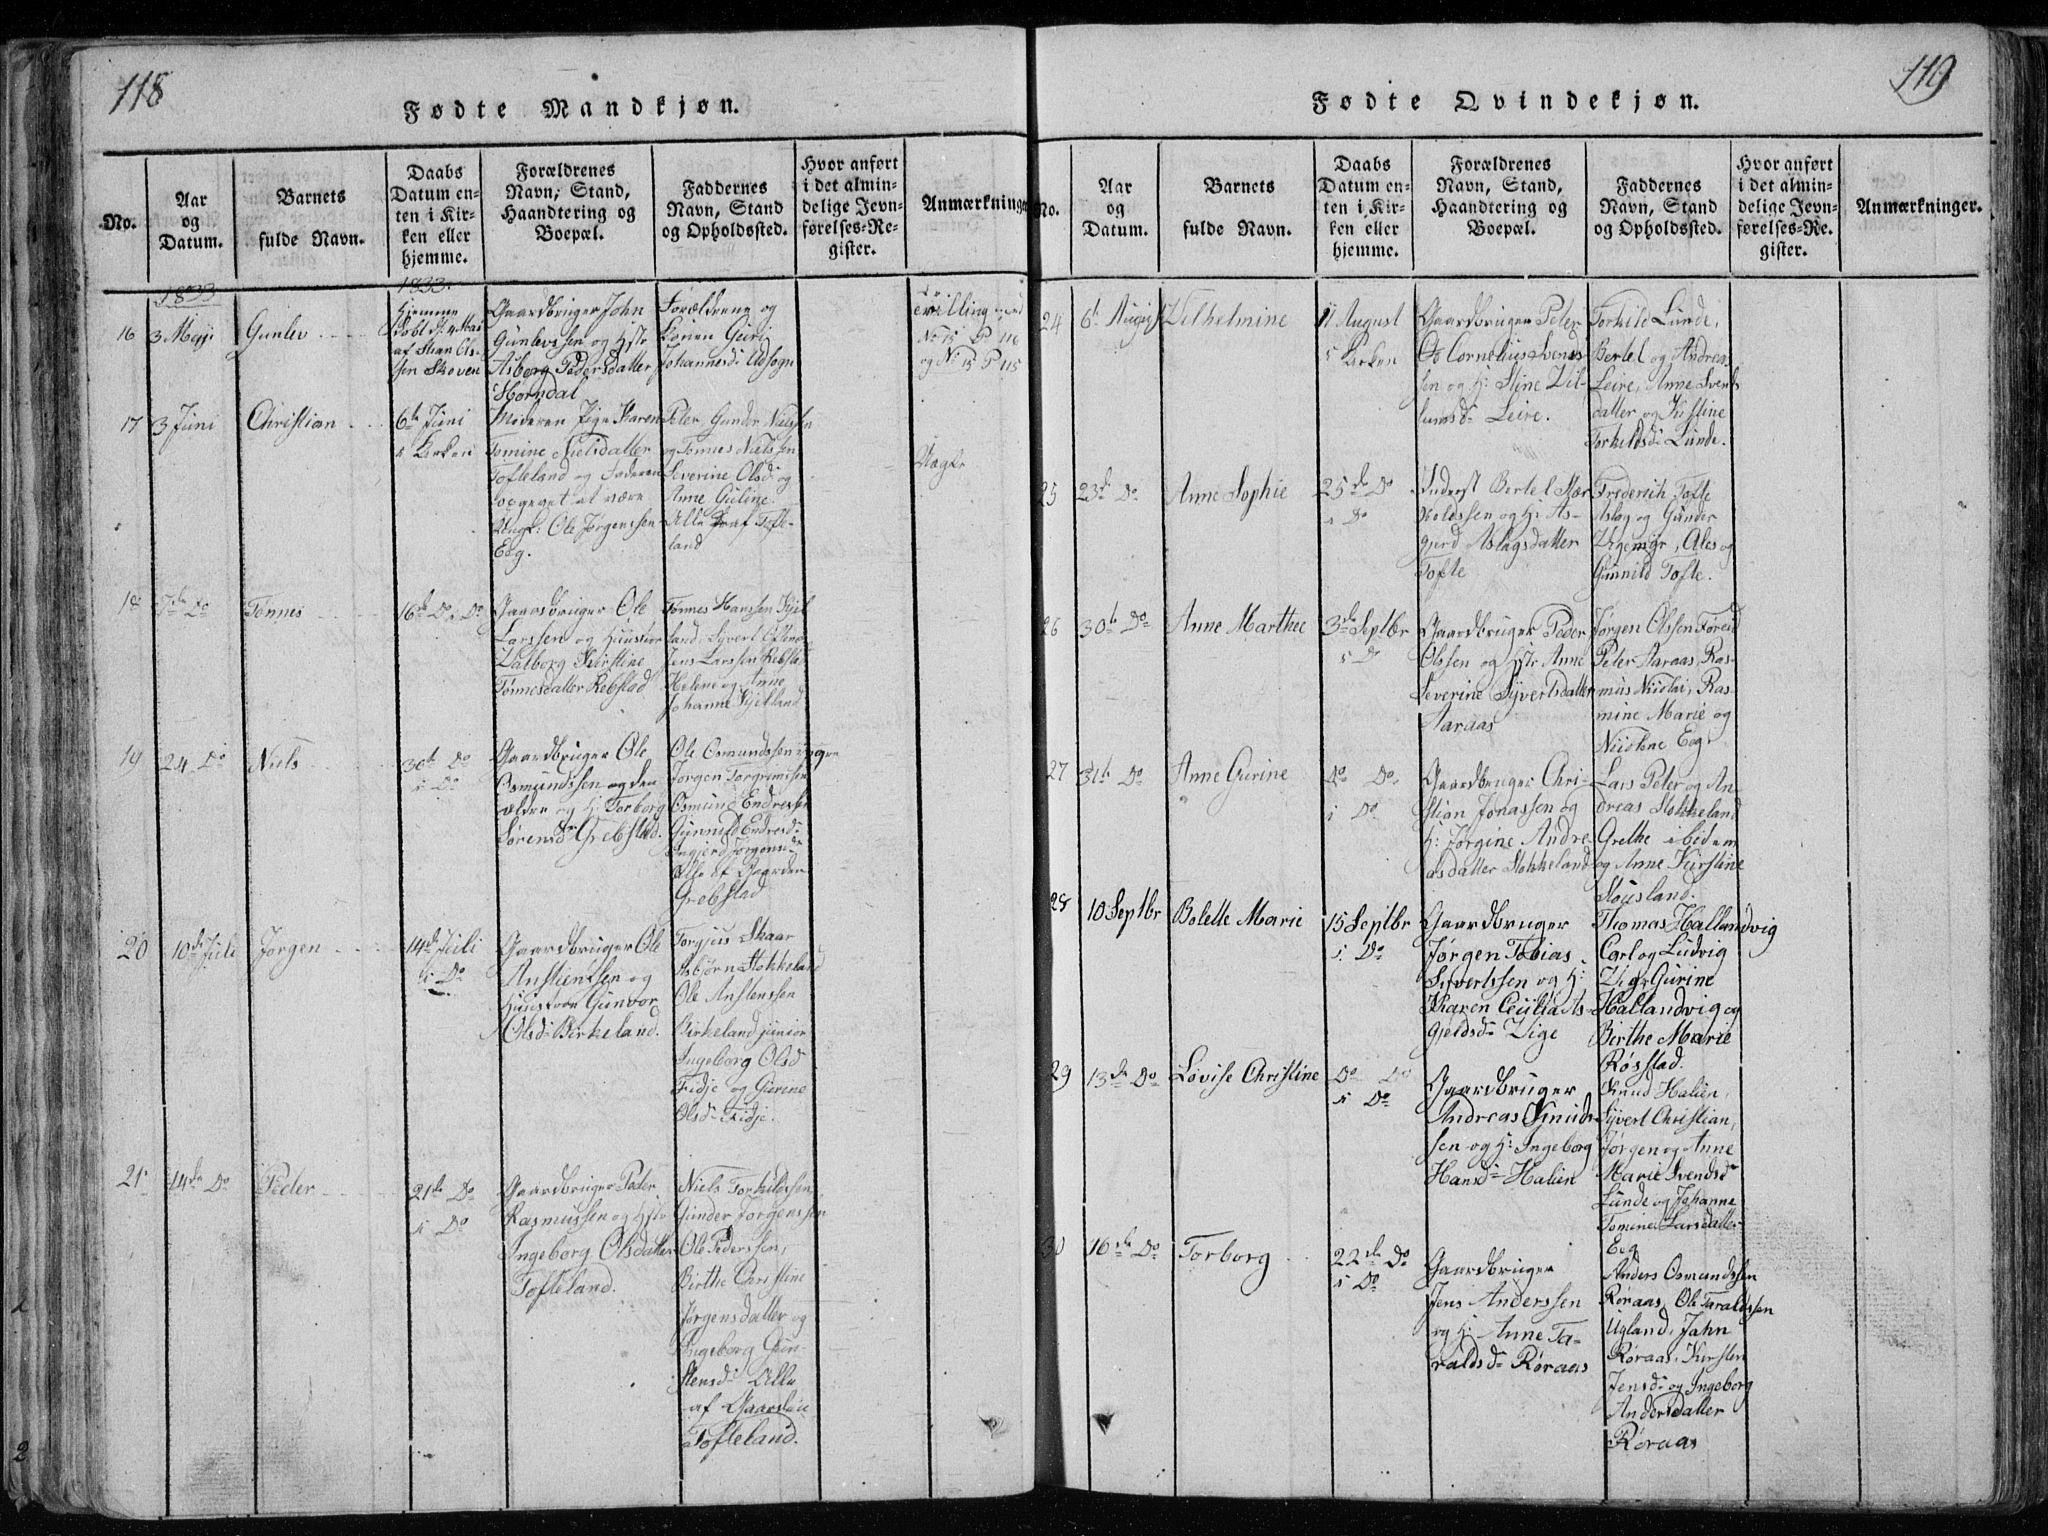 118
Fødte Mandkjøn.
No.
Aar
og
Datum.
Barnets
fulde Navn.
Daabs
Datum en-
ten i Kir-
ken eller
hjemme.
Forældrenes
Navn, Stand,
Haandtering og
Boepæl.
Faddernes
Navn, Stand
og Opholdssted.
Hvor anført
i det almin-
delige Jevn-
førelses-Re-
gister.
Anmærkninger
1833
1833.
16
3 Maji
Gunlev
Hjemme
af Stian Ols-
sen Skoven
Gaardbruger John
Gunlevssen og Hstr
Asborg Pedersdatter
Horndal
Forældrene og
Konen Guri
Johannesd: Udsogn
Tvilling
No 15 P 116
og No 15 P 115
17
3 Juni
Christian
6te Juni
i Kirken
Moderen Pige Karen
Tomine Nielsdatter
Tofteland og Faderen
opgevet at være
Ungk: Ole Jørgenssen
Eeg.
Peter, Gunder Nielssen
og Tonnes Nielssen
Severine Olsd: og
Anne Guline
Alle af Tofte-
land
Uægte
18
7de Do
Tønnes
16de Do i Do
Gaardbruger Ole
Larssen og Huustroe
Valborg Kirstine
Tønnesdatter Rebstad
Tønnes Hanssen Kjel
land, Syvert Oftenæs
Jens Larssen Rebstad
Helene og Anne
Johanne Kjelland
19
24 Do
Niels
30te Do
i Do
Gaardbruger Ole
Osmundssen den
ældre og H: Torborg
Sørensdr Grebstad.
Ole Osmundssen yngre
Jørgen Torgrimssen
Osmund Endressen
Gunnild Endresd:
Ingjerd Jørgensd:
Alle af Gaarden
Grebstad
20
10de Juli
Jørgen
14de Juli
i Do
Gaardbruger Ole
Anstenssen og
Huustroe Gunvor
Olsd: Birkeland.
Torgjus Skaar
Asbjørn Stokkeland
Ole Anstenssen
Birkeland junior
Ingeborg Olsd
Fidje og Gurine
Olsd: Fidje.
21
14de Do
Peder
21de Do
i Do
Gaardbruger Peder
Rasmussen og Hstr
Ingeborg Olsdatter
Tofteland.
Niels Torkildssen
Gunder Jørgenssen
Ole Pederssen,
Birthe Christine
Jørgensdatter og
Ingeborg Gun-
stensd: Alle
af Gaarden
Tofteland.
119
Fødte Qvindekjøn.
No.
Aar
og
Datum.
Barnets
fulde Navn.
Daabs
Datum en-
ten i Kir-
ken eller
hjemme.
Forældrenes
Navn, Stand,
Haandtering og
Boepæl.
Faddernes
Navn, Stand
og Opholdssted.
Hvor anført
i det almin-
delige Jevn-
førelses-Re-
gister.
Anmærkninger.
24
6te August
Vilhelmine
11 August
i Kirken
Gaardbruger Peter
Cornelius Svends
sen og H: Stine Vil-
lumsd: Leire.
Torkild Lunde,
Bertel og Andreas
Leire, Anne Svends
datter og Kistine
Torkildsd: Lunde.
25
23de Do
Anne Sophie
25de Do
i Do
Inderst Bertel Har
koldssen og H: As-
gjerd Aslagsdatter
Tofte
Frederich Tofte
Aslag og Gunder
Vigemyr, Ales og
Gunnild Tofte.
26
30te Do
Anne Marthee
3de Septbr
i Do
Gaardbruger Peder
Olssen og Hstr Anne
Severine Syvertsdatter
Aaraas
Jørgen Olssen Føreid
Peter Aaraas, Ras-
mus Nicolai, Ras-
mine Marie og
Nicoline Eeg.
27
31te Do
Anne Gurine
Do Do
i Do
Gaardbruger Chri-
stian Jonassen og
H: Jørgine Andre-
asdatter Stokkeland
Lars Peter og An
dreas Stokkeland
Grethe ibidem
og Anne Kirstine
Stousland.
28
10 Septbr
Bolette Marie
15 Septbr
i Do
Gaardbruger
Jørgen Tobias
Sivertssen og H:
Karen Cecilia As-
gjeldsd: Vige
Thomas Hallandvig
Carl og Ludvig
Vige Gurine
Hallandvig og
Birthe Marie
Røsstad.
29
13de Do
Lovise Christine
Do Do
i Do
Gaardbruger
Andreas Knuds
sen og H: Ingeborg
Hansd: Halien
Knud Halien,
Syvert Christian,
Jørgen og Anne
Marie Svendsd:
Lunde og Johanne
Tomine Larsdatter
Eeg
30
16de Do
Torborg
22de Do
i Do
Gaardbruger
Jens Anderssen
og H: Anne Ta-
raldsd: Røraas
Anders Osmundssen
Røraas, Ole Taraldssen
Ugland, Jahn
Røraas, Kirsten
Jensd: og Ingeborg
Andersdatter
Røraas